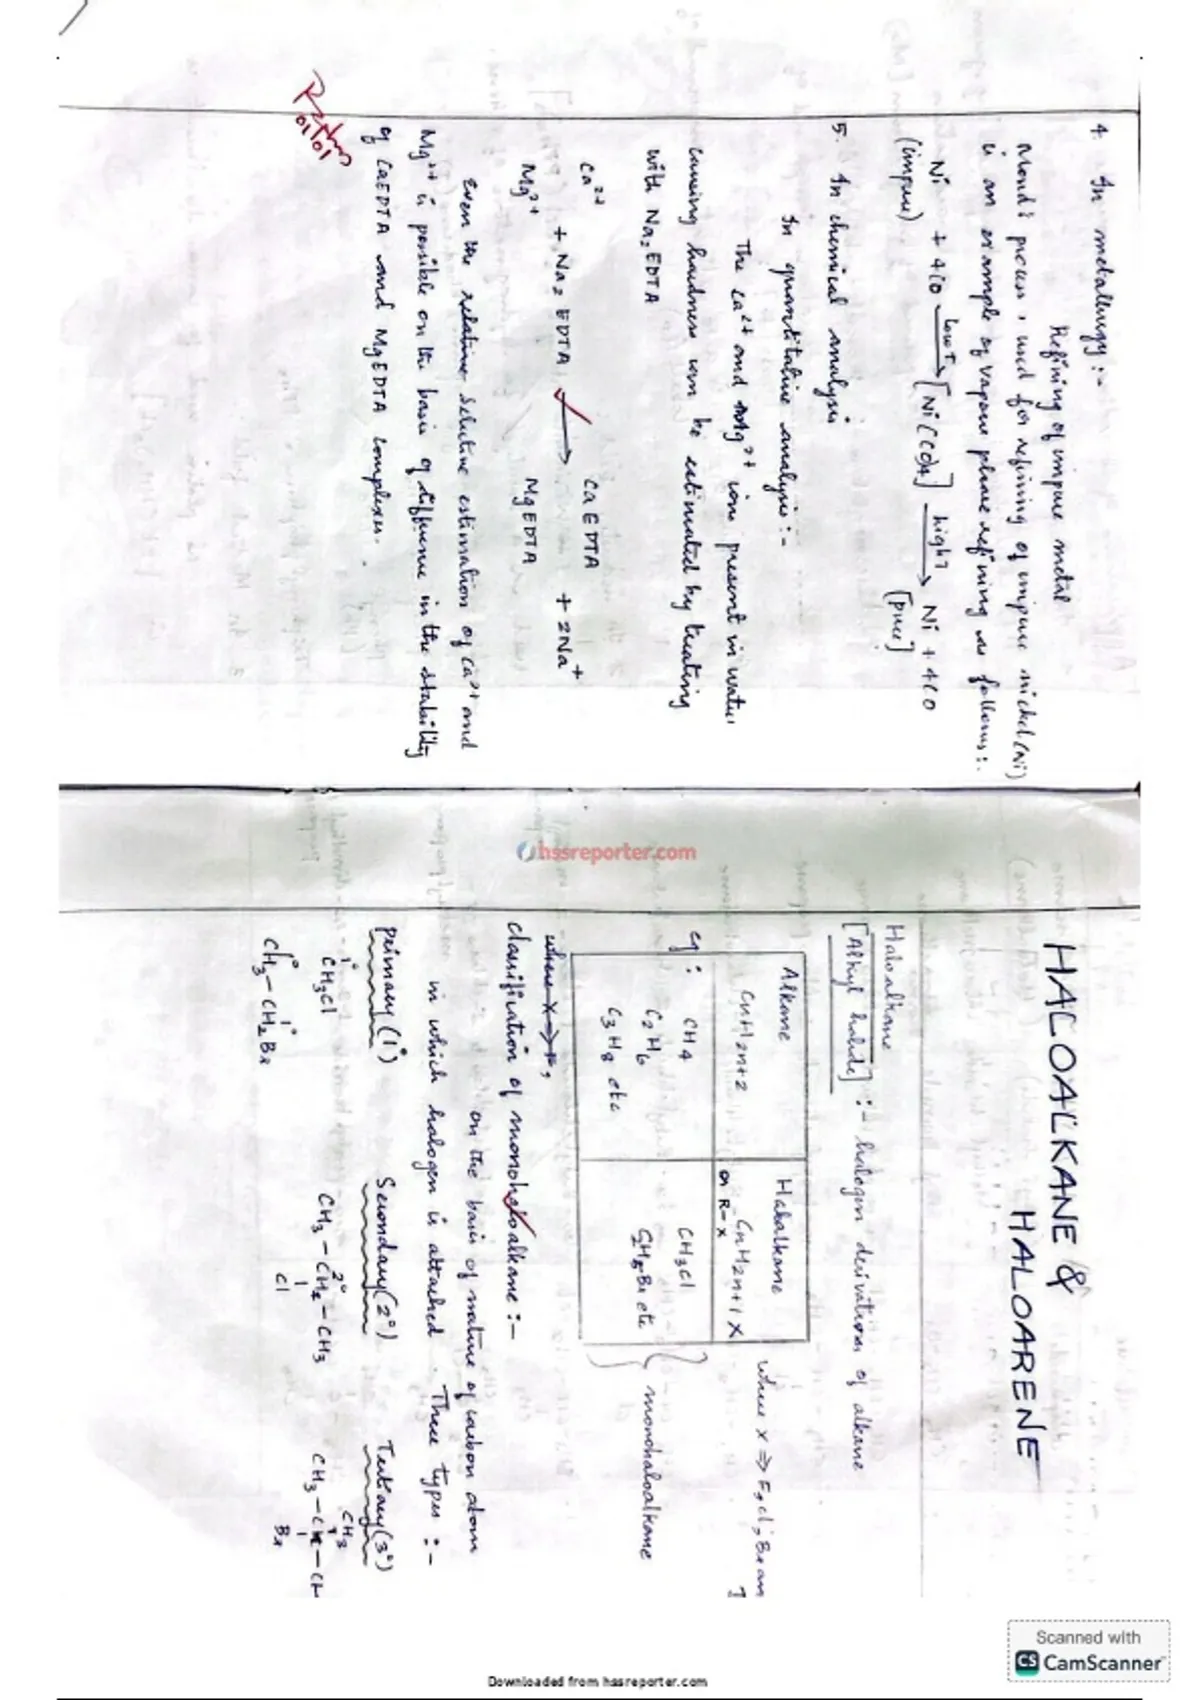 4. In metallurgy :-
Refining of impure metal
Mond's process, used for refining of impure nickel (Ni)
is an example of vapour phase refining as follows :-
Ni + 4CO →low T [Ni(CO)4] →high T Ni + 4CO
(impure) [pure]
5. In chemical analysis
In quantitative analysis :-
The Ca2+ and Mg2+ ions present in water
causing hardness can be estimated by treating
with Na2 EDTA
Ca2+ CaEDTA
+ Na2 EDTA → + 2Na+
Mg2+ MgEDTA
Even the selective estimation of Ca2+ and
Mg2+ is possible on the basis of difference in the stability
of CaEDTA and MgEDTA complexes.
01/01
hssreporter.com
HALOALKANE &
HALOARENE
Haloalkane
[Alkyl halide] :- halogen derivatives of alkane
Alkane Haloalkane
where X ⇒ F, Cl, Br an
I
CnH2n+2 CnH2n+1 X
or R-X
eg : CH4 CH3Cl
C2H6 C2H5Br etc
C3H8 etc
monohaloalkane
where X ⇒ F,
classification of monohaloalkane :-
on the basis of nature of carbon atom
in which halogen is attached. Three types :-
primary (1°) Secondary (2°) Tertiary (3°)
1° CH3Cl CH3 - 2° CH2 - CH3 CH3
Cl CH3 - C - CH
CH3 - CH2 Br Br
Scanned with
CS CamScanner
Downloaded from hssreporter.com